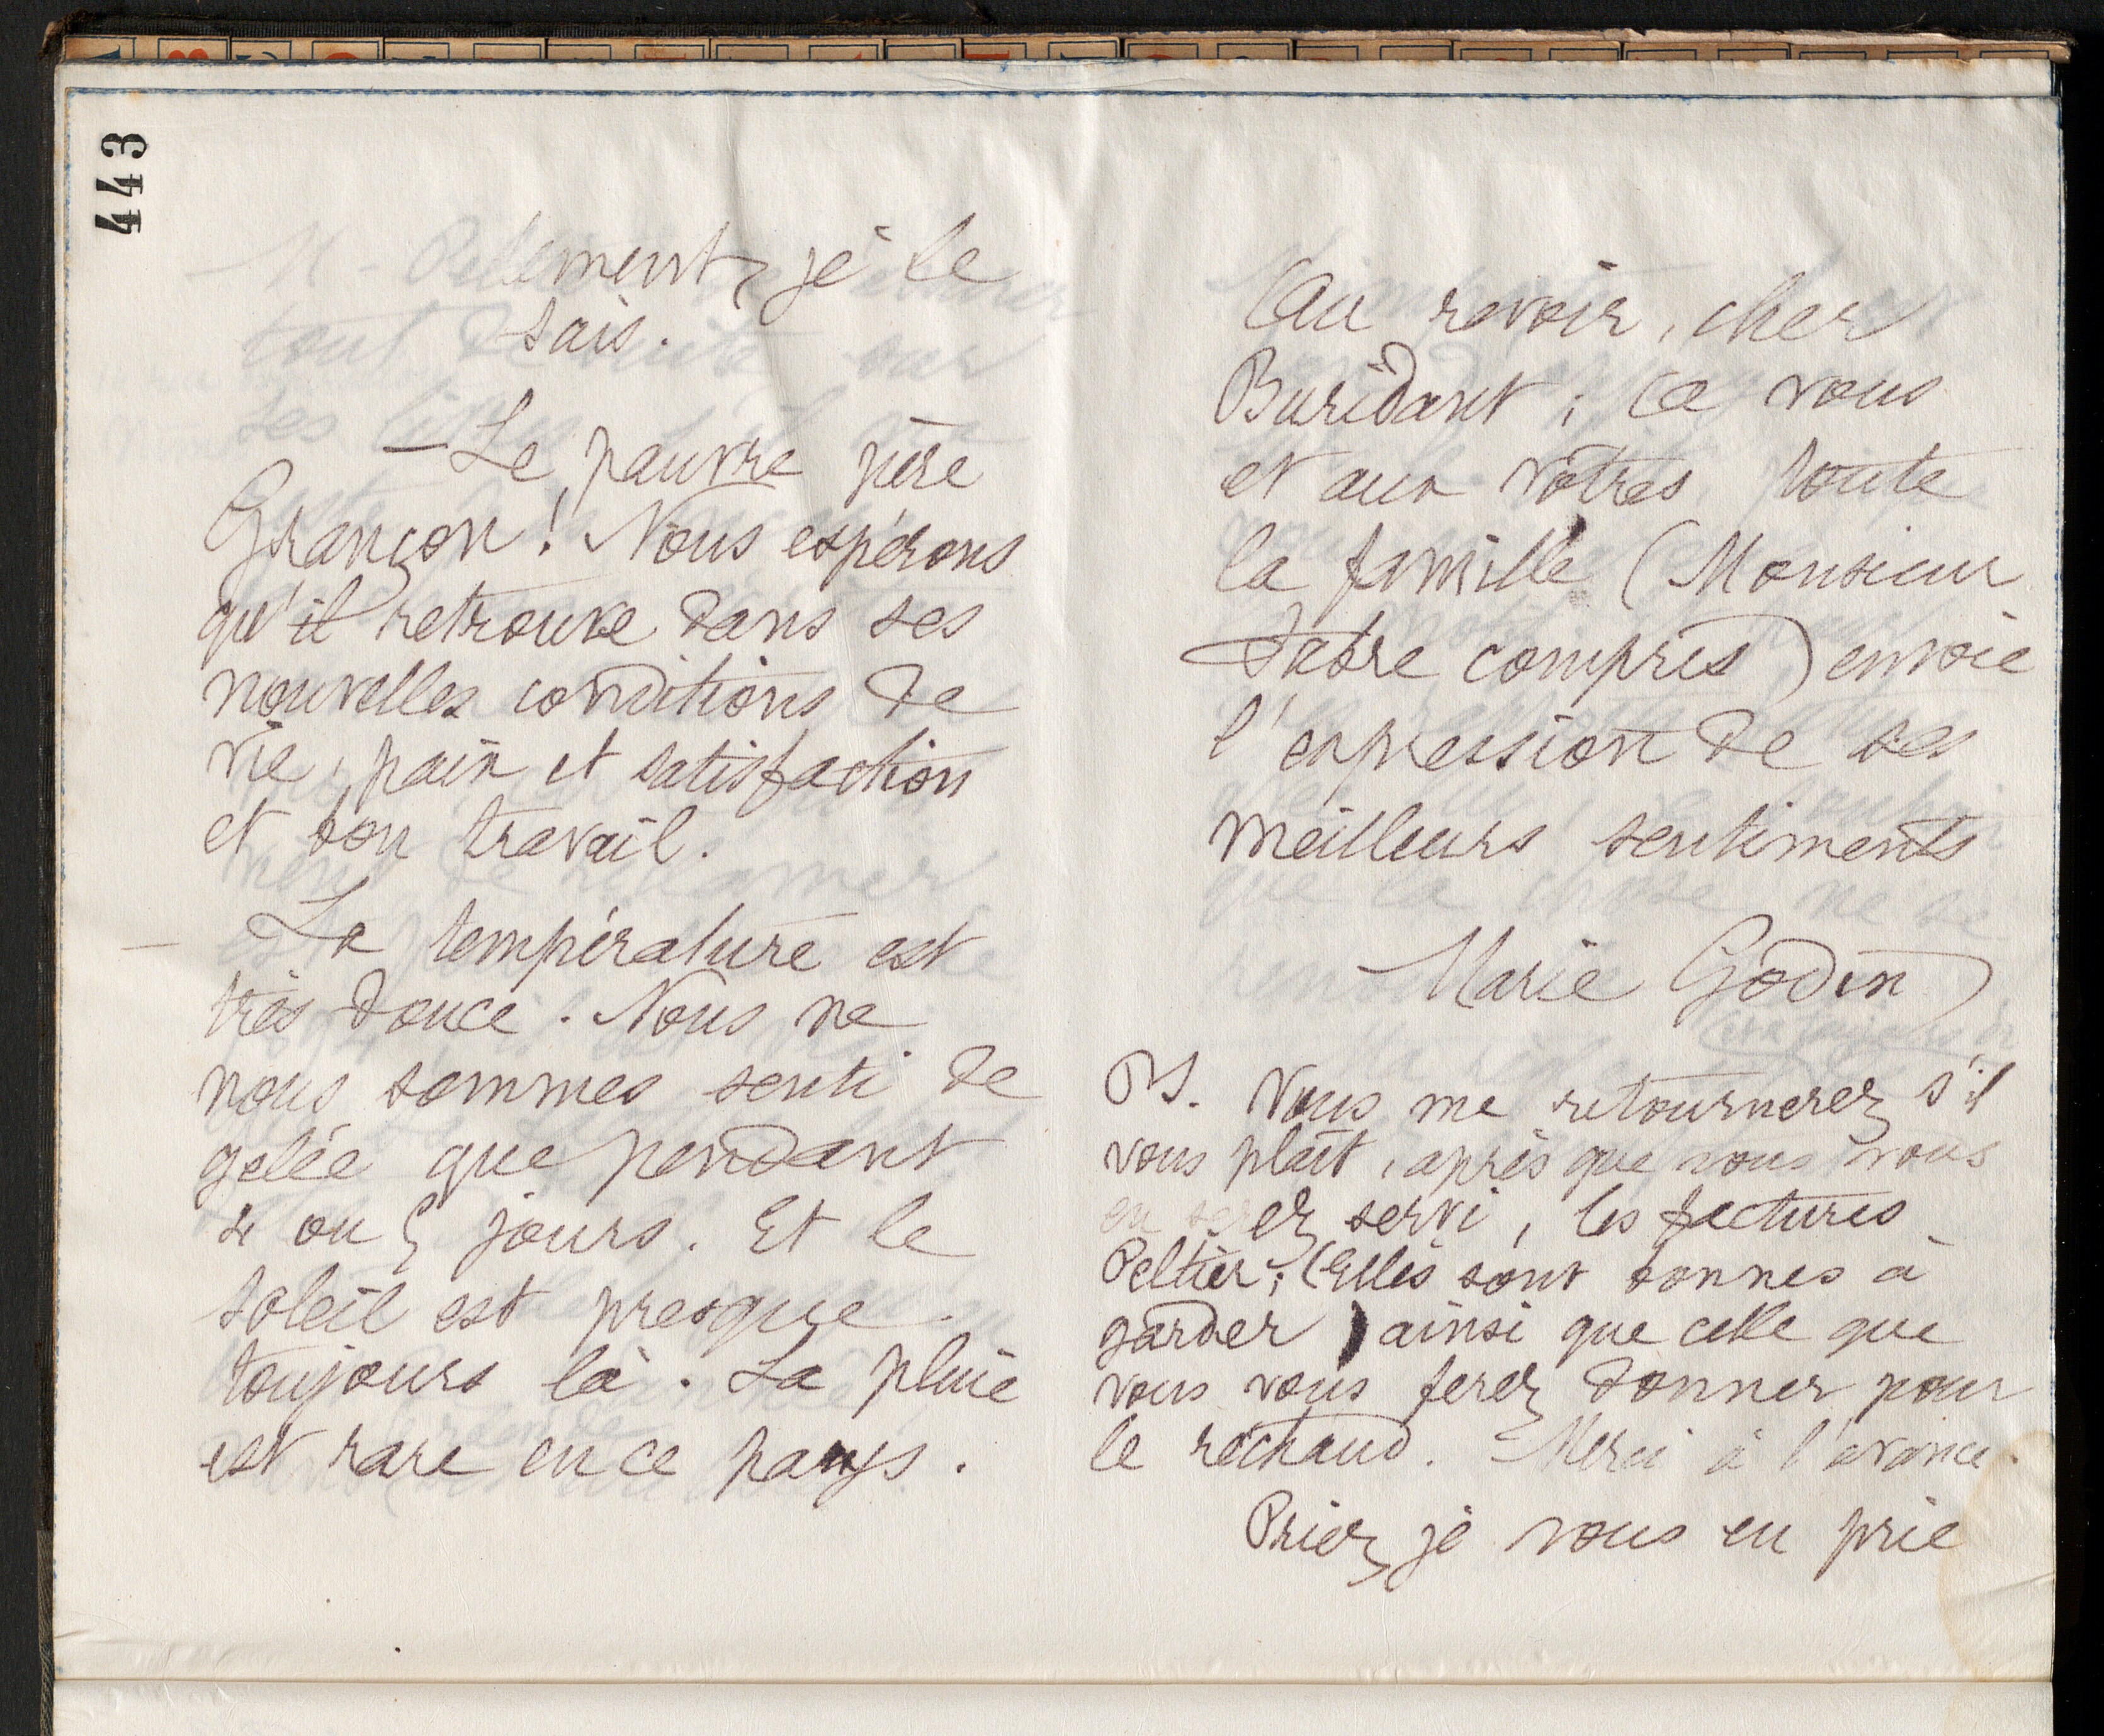 443
lement, je le
sais.
— Le pauvre père
Grançon! Nous espérons
qu'il retrouve dans ses
nouvelles conditions de
vie, paix et satisfaction
et bon travail.
— La température est
très douce. Nous ne
nous sommes senti de
gelée que pendant
4 ou 5 jours. Et le
soleil est presque
toujours là. La pluie
est rare en ce pays.
Au revoir, cher
Buridant, à vous
et aux vôtres, toute
la famille (Monsieur
Fabre compris) envoie
l'expression de ses
meilleurs sentiments
Marie Godin
PS. Vous me retournerez s'il
vous plaît, après que vous vous
en serez servi, les factures
Peltier; (Elles sont bonnes à
garder) ainsi que celle que
vous vous ferez donner pour
le réchaud. Merci à l'avance.
Priez, je vous en prie